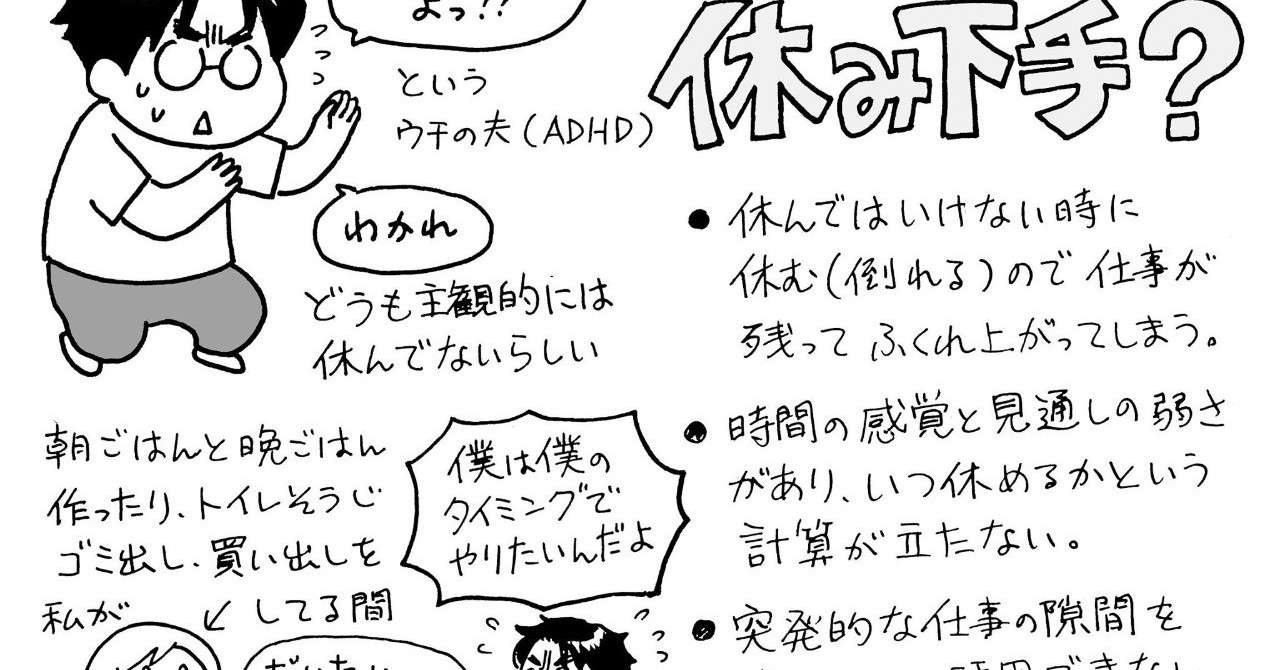 よっ!?
という
ウチの夫(ADHD)
わかれ
どうも主観的には
休んでないらしい
朝ごはんと晩ごはん
作ったり、トイレそうじ
ゴミ出し、買い出しを
私が
してる間
僕は僕の
タイミングで
やりたいんだよ
休み下手?
●休んではいけない時に
休む(倒れる)ので仕事が
残ってふくれ上がってしまう。
●時間の感覚と見通しの弱さ
があり、いつ休めるかという
計算が立たない。
●突発的な仕事の隙間を